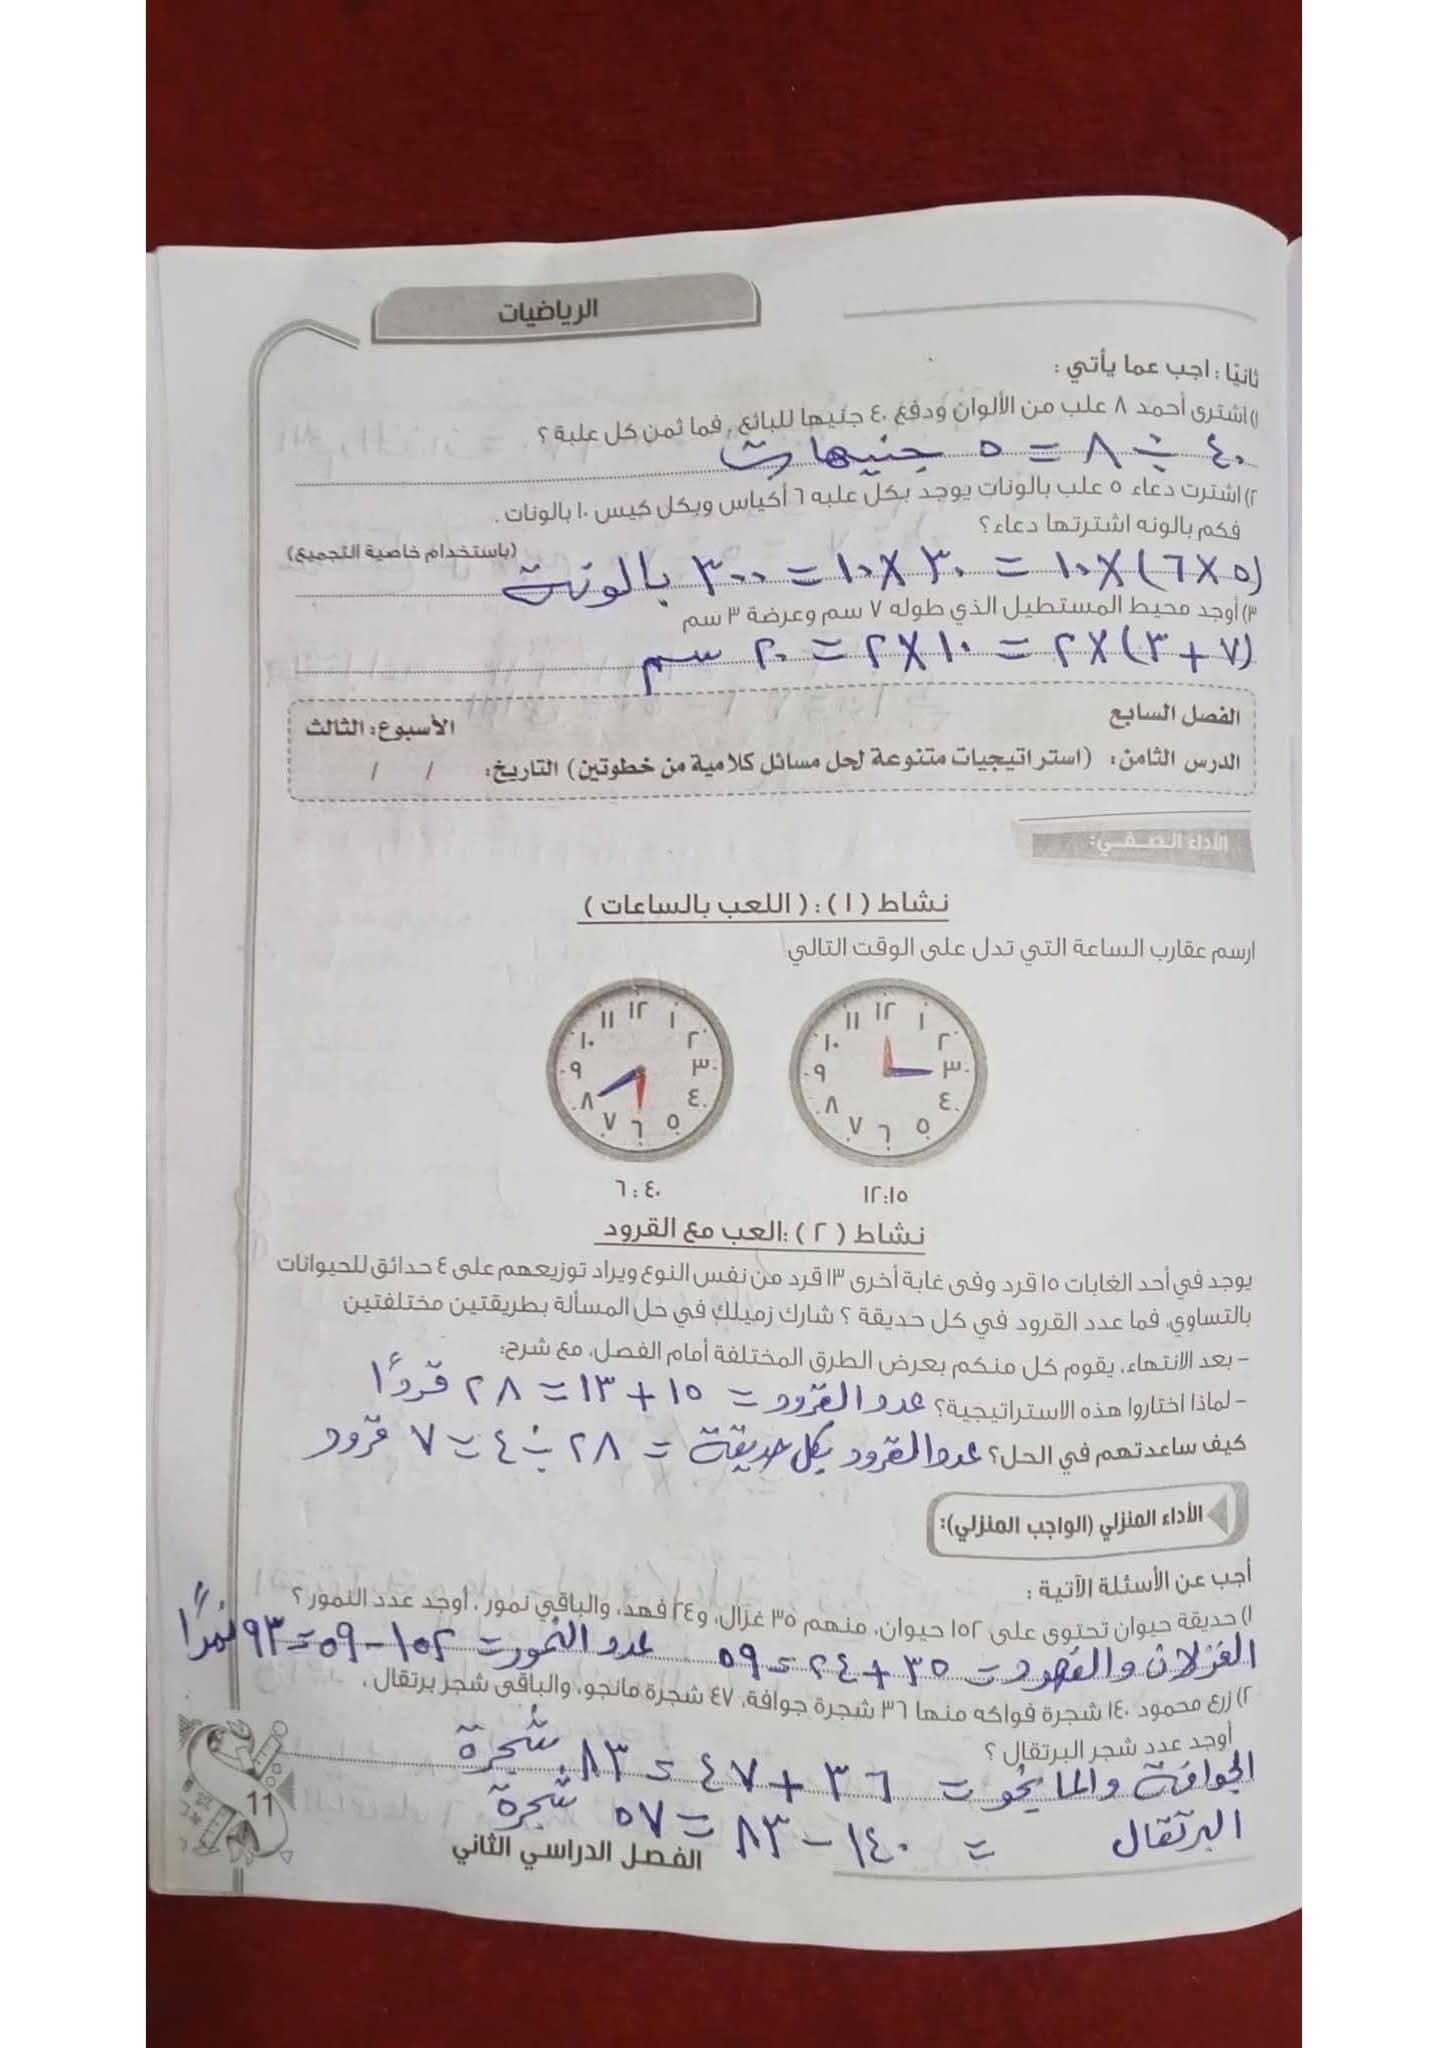 الرياضيات
ثانيًا : اجب عما يأتي :
١) اشترى أحمد ٨ علب من الألوان ودفع ٤٠ جنيها للبائع , فما ثمن كل علبة ؟
٤٠ ÷ ٨ = ٥ جنيهات
٢) اشترت دعاء ٥ علب بالونات يوجد بكل علبه ٦ أكياس وبكل كيس ١٠ بالونات .
فكم بالونه اشترتها دعاء؟
(باستخدام خاصية التجميع)
(٥ × ٦) × ١٠ = ٣٠ × ١٠ = ٣٠٠ بالونة
٣) أوجد محيط المستطيل الذي طوله ٧ سم وعرضة ٣ سم
(٧ + ٣) × ٢ = ١٠ × ٢ = ٢٠ سم
الفصل السابع
الأسبوع: الثالث
الدرس الثامن: (استراتيجيات متنوعة لحل مسائل كلامية من خطوتين) التاريخ: / /
الأداء الصفي:
نشاط (١) : ( اللعب بالساعات )
ارسم عقارب الساعة التي تدل على الوقت التالي
١٢ ١ ٢ ٣ ٤ ٥ ٦ ٧ ٨ ٩ ١٠ ١١
١٢ ١ ٢ ٣ ٤ ٥ ٦ ٧ ٨ ٩ ١٠ ١١
١٢:١٥
٦:٤٠
نشاط (٢) :العب مع القرود
يوجد في أحد الغابات ١٥ قرد وفى غابة أخرى ١٣ قرد من نفس النوع ويراد توزيعهم على ٤ حدائق للحيوانات
بالتساوي، فما عدد القرود في كل حديقة ؟ شارك زميلك في حل المسألة بطريقتين مختلفتين
- بعد الانتهاء، يقوم كل منكم بعرض الطرق المختلفة أمام الفصل، مع شرح:
- لماذا اختاروا هذه الاستراتيجية؟ عدد القرود = ١٥ + ١٣ = ٢٨ قردًا
كيف ساعدتهم في الحل؟ عدد القرود بكل حديقة = ٢٨ ÷ ٤ = ٧ قرود
الأداء المنزلي (الواجب المنزلي):
أجب عن الأسئلة الآتية :
١) حديقة حيوان تحتوى على ١٥٢ حيوان، منهم ٣٥ غزال، و٢٤ فهد، والباقي نمور . أوجد عدد النمور ؟
الغزلان والفهود = ٣٥ + ٢٤ = ٥٩ عدد النمور = ١٥٢ - ٥٩ = ٩٣ نمرًا
٢) زرع محمود ١٤٠ شجرة فواكه منها ٣٦ شجرة جوافة، ٤٧ شجرة مانجو، والباقى شجر برتقال .
أوجد عدد شجر البرتقال ؟
الجوافة والمانجو = ٣٦ + ٤٧ = ٨٣ شجرة
البرتقال = ١٤٠ - ٨٣ = ٥٧ شجرة
الفصل الدراسي الثاني
11